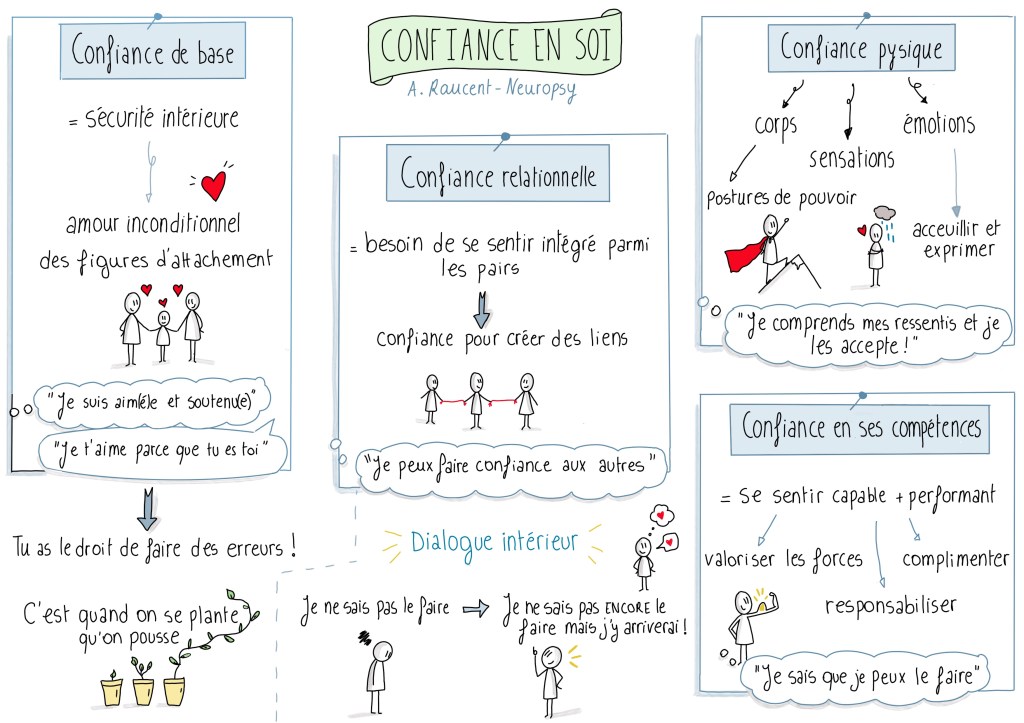 CONFIANCE EN SOI
A. Raucent - Neuropsy
Confiance de base
= sécurité intérieure
amour inconditionnel
des figures d'attachement
"Je suis aimé(e) et soutenu(e)"
"Je t'aime parce que tu es toi"
Tu as le droit de faire des erreurs !
C'est quand on se plante
qu'on pousse
Confiance relationnelle
= besoin de se sentir intégré parmi
les pairs
confiance pour créer des liens
"Je peux faire confiance aux autres"
Dialogue intérieur
Je ne sais pas le faire
Je ne sais pas ENCORE le
faire mais j'y arriverai !
Confiance pysique
corps
sensations
émotions
postures de pouvoir
acceuillir et
exprimer
"Je comprends mes ressentis et je
les accepte !"
Confiance en ses compétences
= se sentir capable + performant
valoriser les forces
complimenter
responsabiliser
"Je sais que je peux le faire"